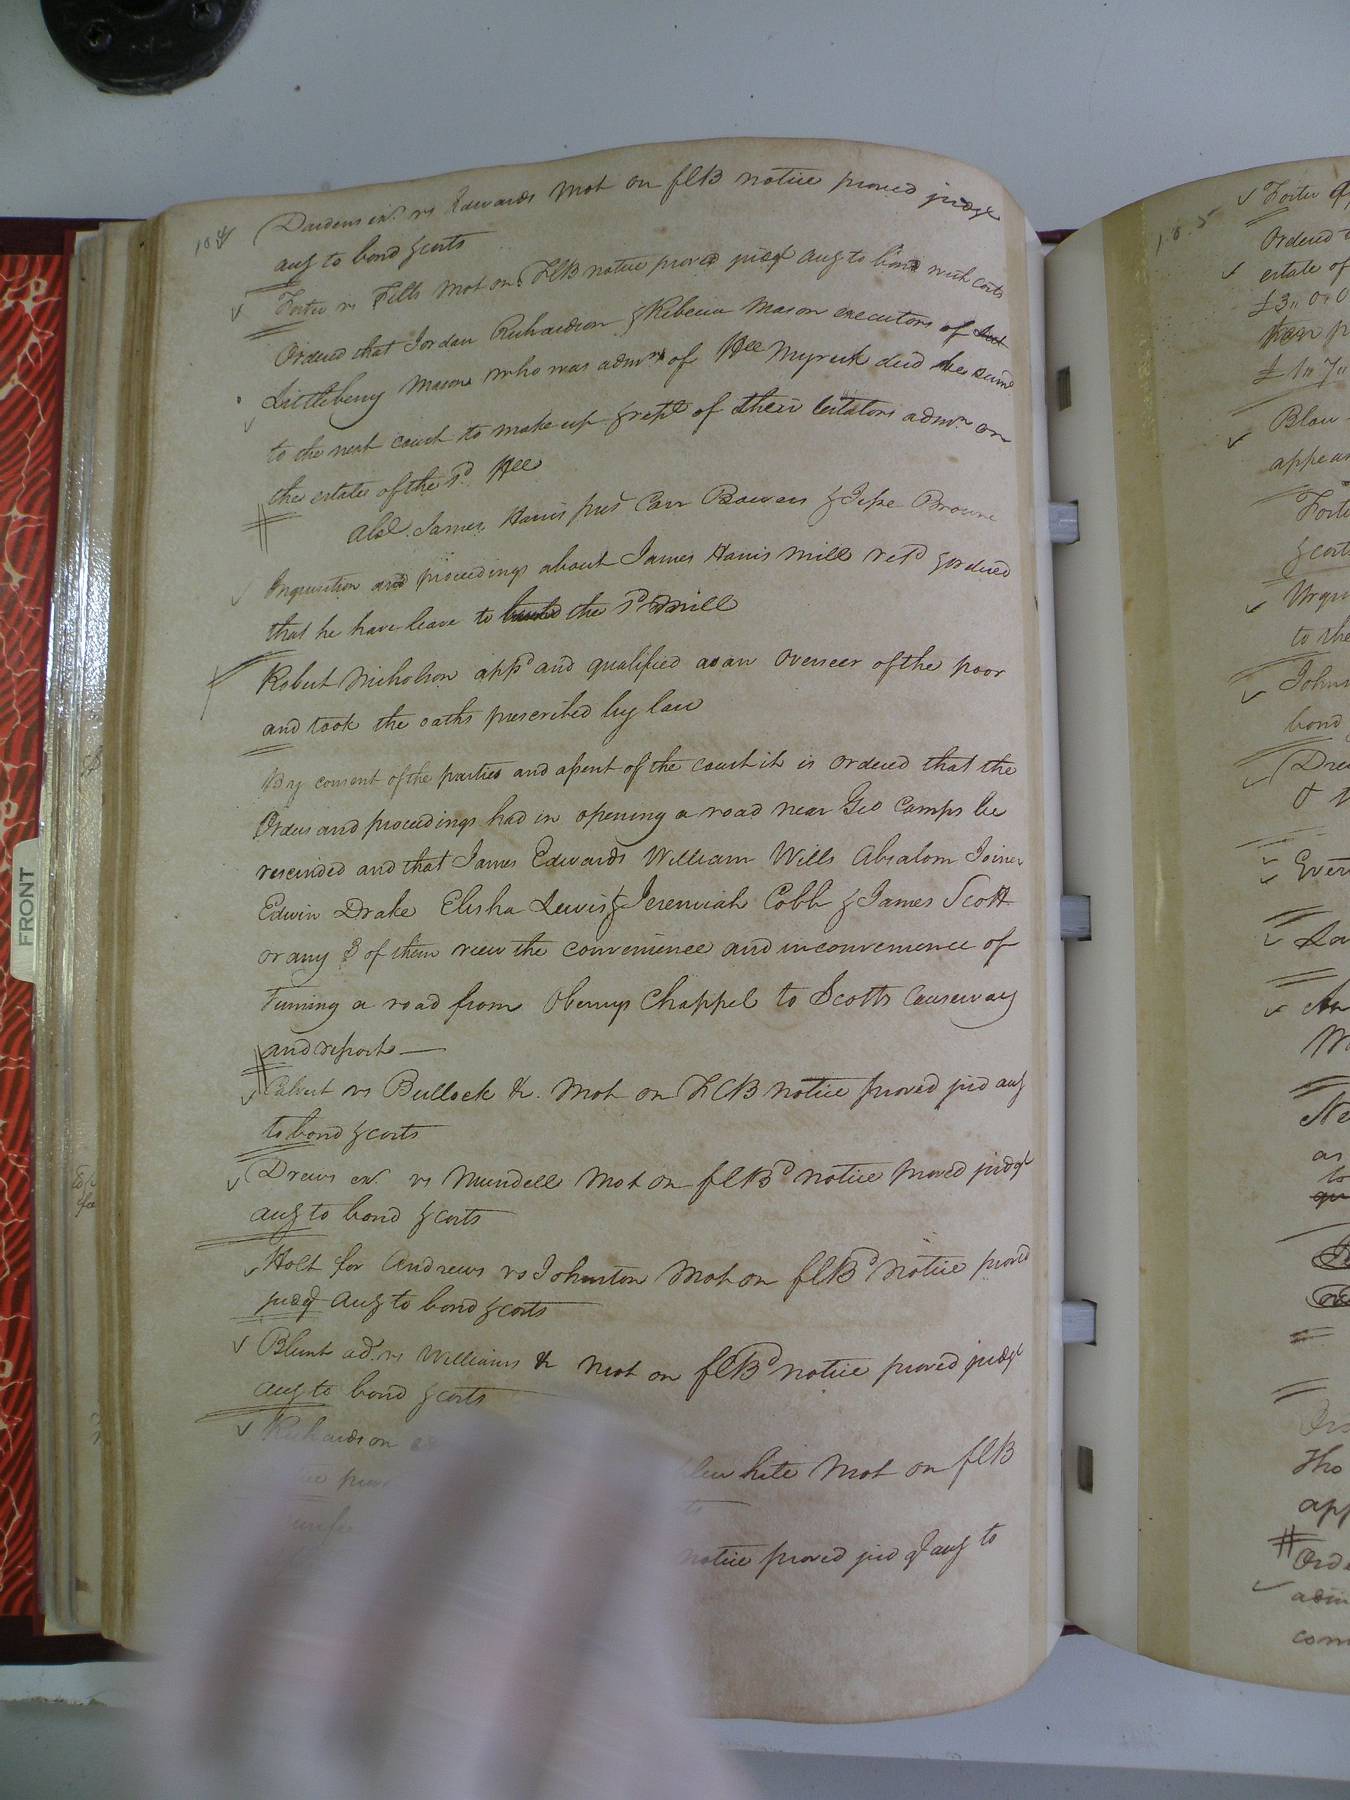 184
Dardens exr. vs Edwards Mot on flB notice proved judgt
accg to bond & costs
Foster vs Fells Mot on FlB notice proved judgt accg to bond with costs
Ordered that Jordan Richardson & Rebecca Mason executors of
Littleberry Mason who was admr. of Mee Myrick decd be sumd
to the next court to make up & retd of their testators admn on
the estates of the sd. Mee
Absl. James Harris prest Carr Bowers & Jesse Browne
Inquisition and proceedings about James Harris mill retd & ordered
that he have leave to the sd mill
Robert Nicholson appd and qualified as an Overseer of the poor
and took the oaths prescribed by law
By consent of the parties and assent of the court it is ordered that the
Orders and proceedings had in opening a road near Geo Camps be
rescinded and that James Edwards William Wills Absalom Joiner
Edwin Drake Elisha Lewis & Jeremiah Cobb & James Scott
or any 3 of them view the convenience and inconvenience of
Turning a road from Oberrys Chappel to Scotts Causeway
and report
Calvert vs Bullock &c. Mot on FlB notice proved jud accg
to bond & costs
Drews exr. vs Mundell Mot on flBd notice proved judgt
accg to bond & costs
Holt for Andrews vs Johnston Mot on flBd notice proved
judgt accg to bond & costs
Blunt ad. vs Williams &c Mot on flBd notice proved judgt
accg to bond & costs
Richardson
hite Mot on flB
notice proved jud accg to
FRONT
185
Foster
Ordered
estate of
£3"0"0
£1"7"
Blow
appear
& costs
to the
John
bond
Drew
as
Tho
app
Ord